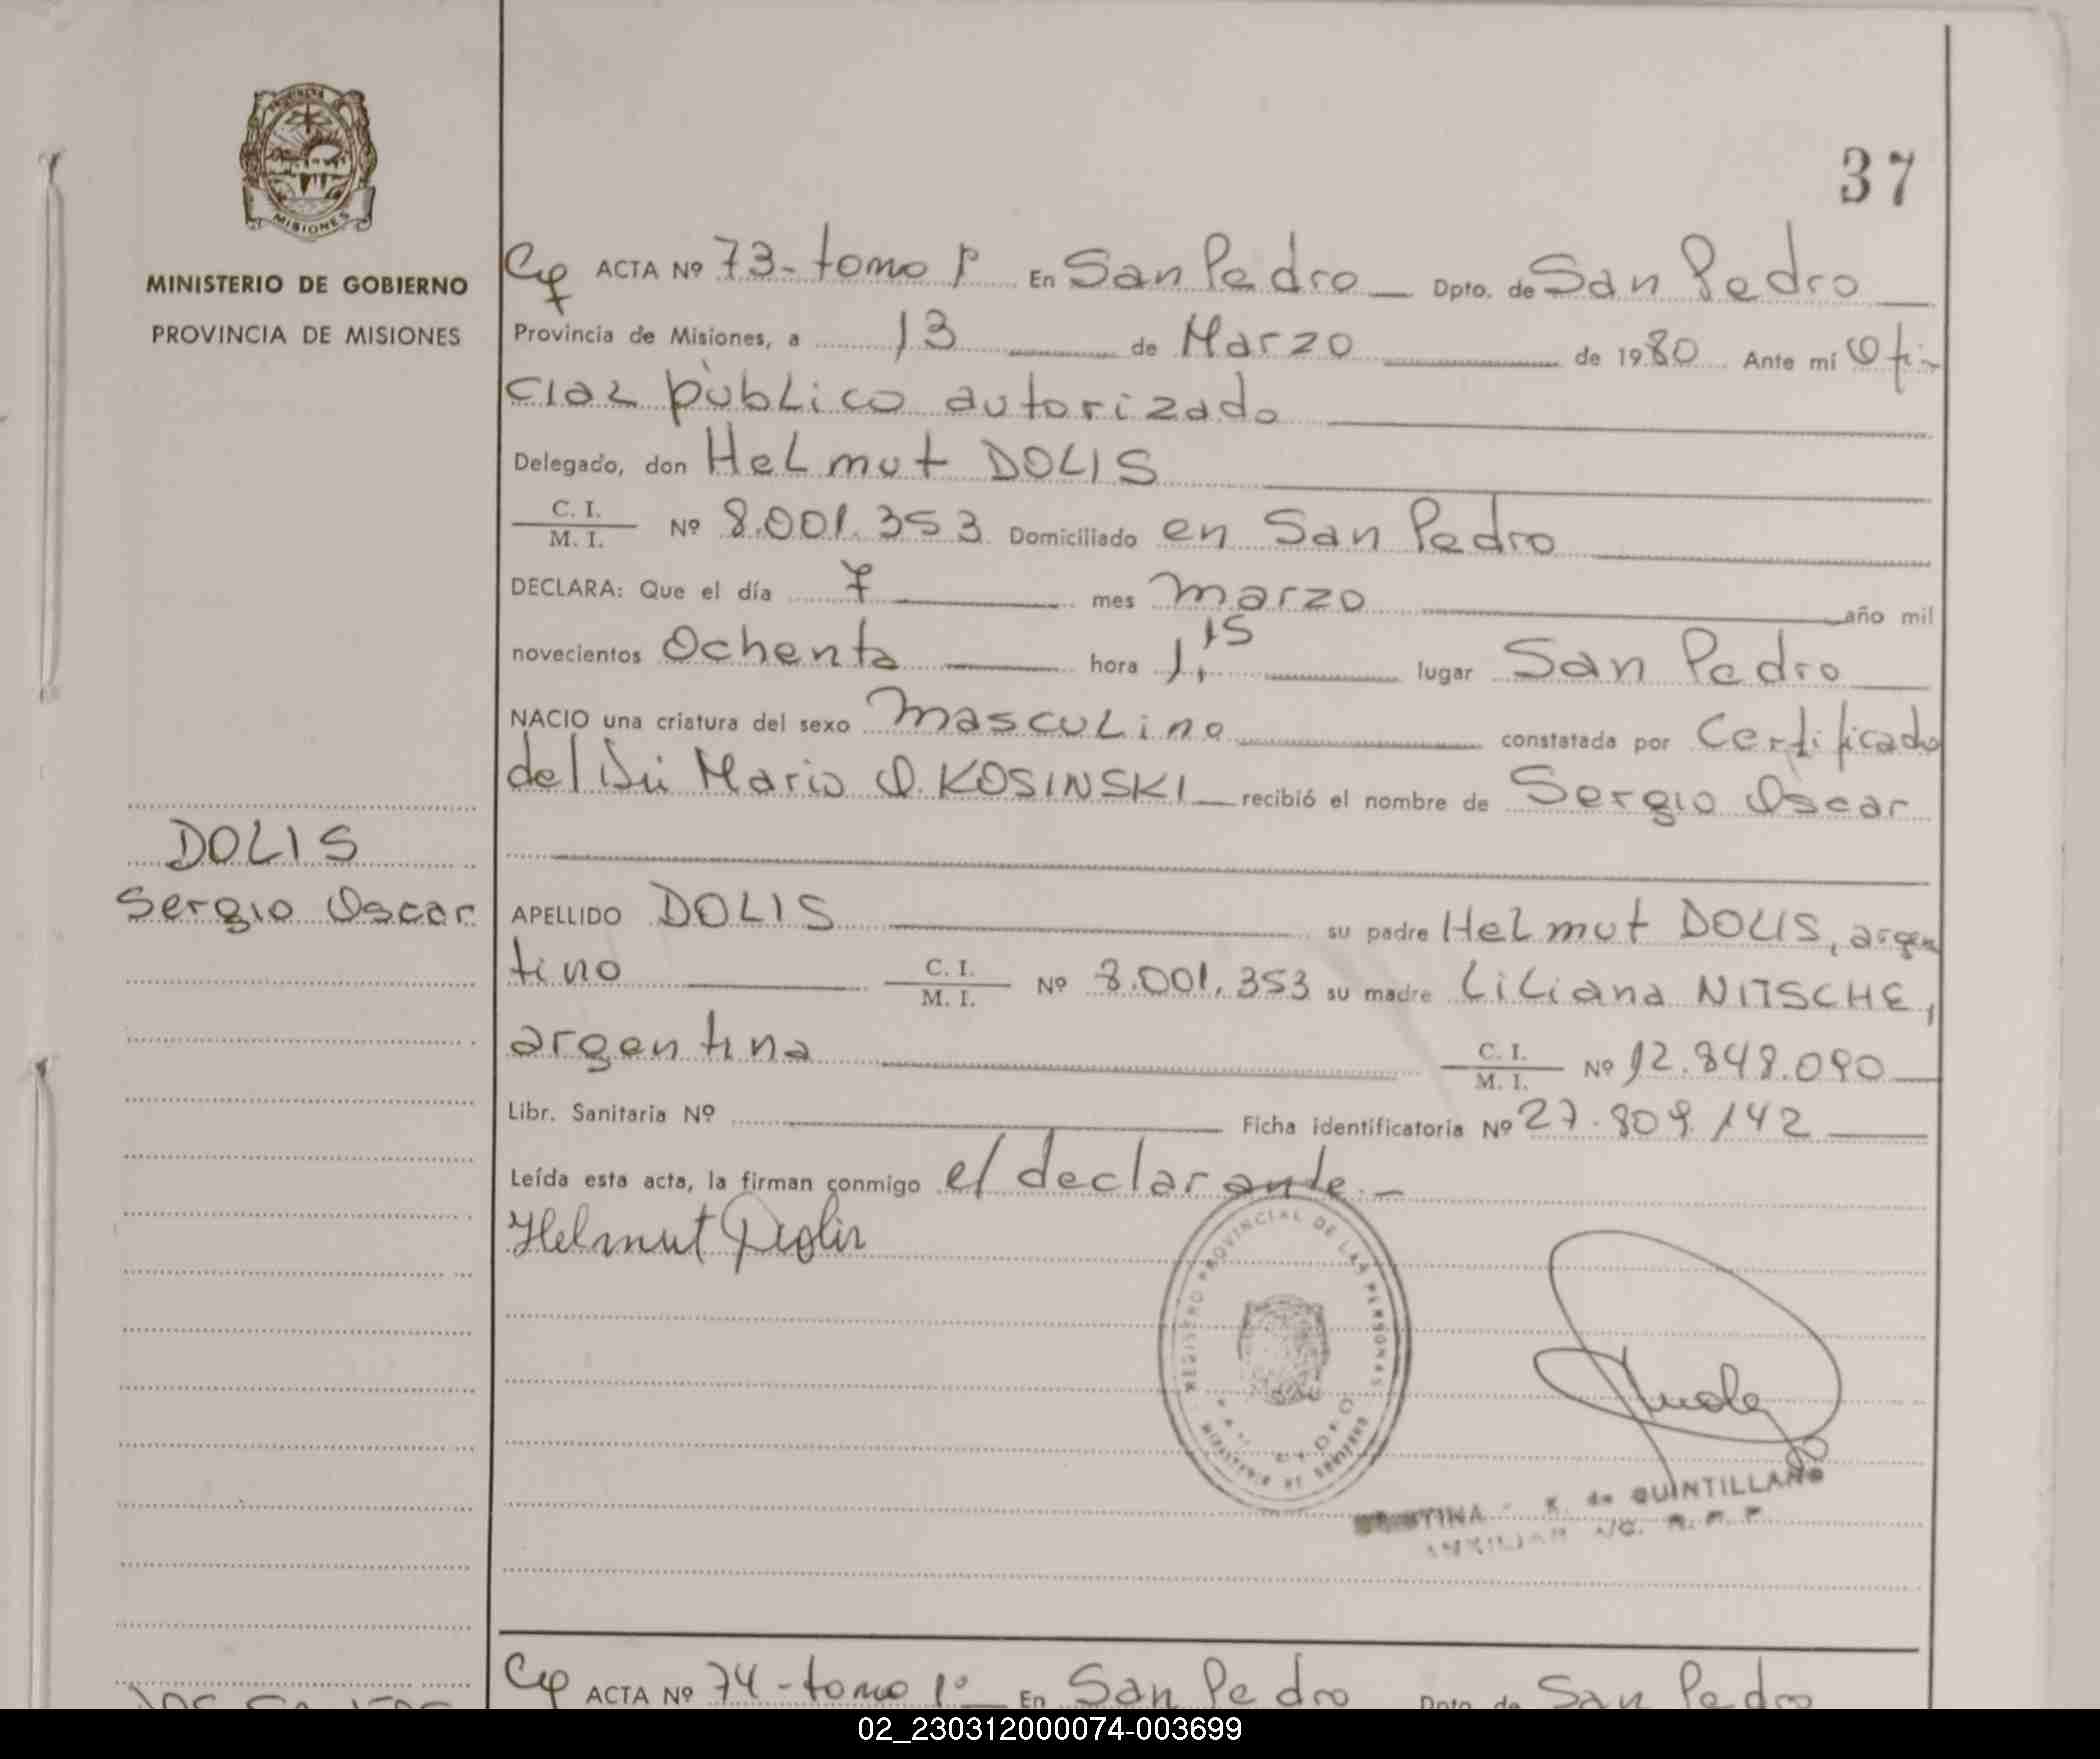 PROVINCIA DE
MISIONES
MINISTERIO DE GOBIERNO
PROVINCIA DE MISIONES
DOLIS
Sergio Oscar
37
ACTA Nº 73 - tomo 1º En San Pedro Dpto. de San Pedro
Provincia de Misiones, a 13 de Marzo de 1980 Ante mí Ofi-
cial público autorizado
Delegado, don Helmut DOLIS
C. I.
M. I. Nº 8.001.353 Domiciliado en San Pedro
DECLARA: Que el día 7 mes marzo año mil
novecientos Ochenta hora 1,15 lugar San Pedro
NACIO una criatura del sexo masculino constatada por Certificado
del Dr. Mario O. KOSINSKI recibió el nombre de Sergio Oscar
APELLIDO DOLIS su padre Helmut DOLIS, argen
tino C. I.
M. I. Nº 8.001.353 su madre Liliana NITSCHE,
argentina C. I.
M. I. Nº 12.848.090
Libr. Sanitaria Nº Ficha identificatoria Nº 27.809.142
Leída esta acta, la firman conmigo el declarante. -
Helmut Dolis
REGISTRO PROVINCIAL DE LAS PERSONAS
K. de QUINTILLANO
ACTA Nº 74 - tomo 1º En San Pedro Dpto. de San Pedro
02_230312000074-003699